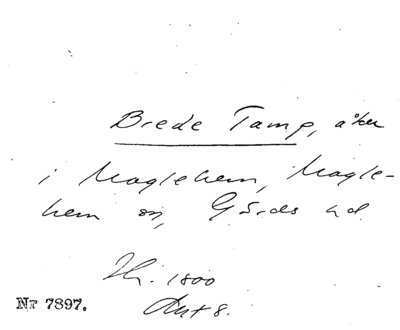 Brede Tamp, åker
i Maglehem, Magle-
hem sn, Gärds hd.
Hr. 1800
Akt 8.
Nr 7897.